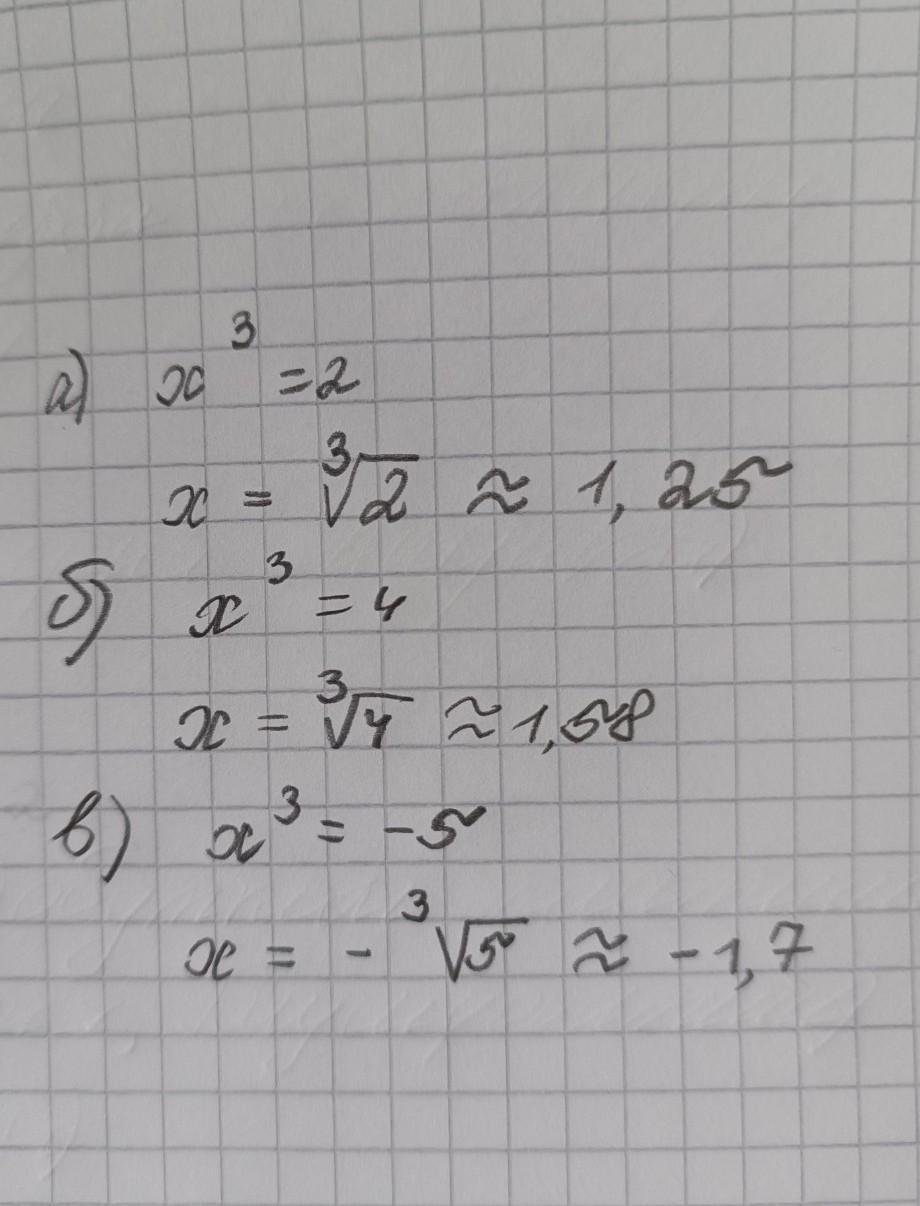 а) x³ = 2
x = ∛2 ≈ 1,25
б) x³ = 4
x = ∛4 ≈ 1,58
в) x³ = -5
x = - ∛5 ≈ -1,7